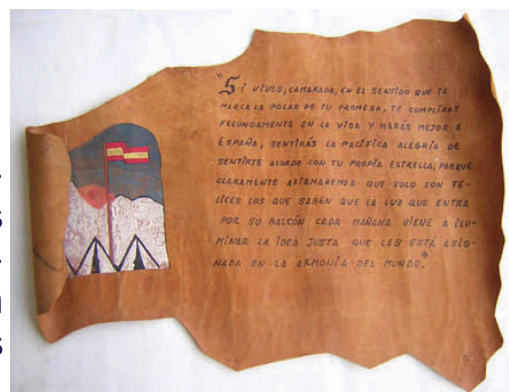 "Si VIVES, CAMARADA, EN EL SENTIDO QUE TE
MARCA LA POLAR DE TU PROMESA, TE CUMPLIRAS
FECUNDAMENTE EN LA VIDA Y HARÁS MEJOR A
ESPAÑA, SENTIRÁS LA PACÍFICA ALEGRÍA DE
SENTIRTE ACORDE CON TU PROPIA ESTRELLA, PORQUE
CLARAMENTE AFIRMAREMOS QUE SOLO SON FE-
LICES LOS QUE SABEN QUE LA LUZ QUE ENTRA
POR SU BALCÓN CADA MAÑANA VIENE A ILU-
MINAR LA IDEA JUSTA QUE LES ESTÁ ASIG-
NADA EN LA ARMONÍA DEL MUNDO."